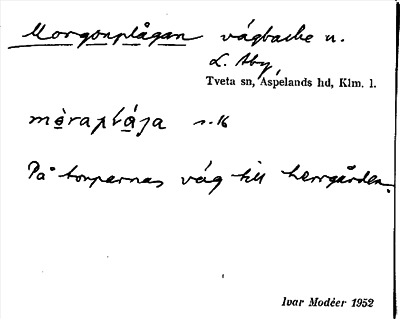 Morgonplågan vägbacke n.
L. Aby
Tveta sn, Aspelands hd, Klm. l.
mèraplåga s. 16
På torparnas väg till herrgården.
Ivar Modéer 1952